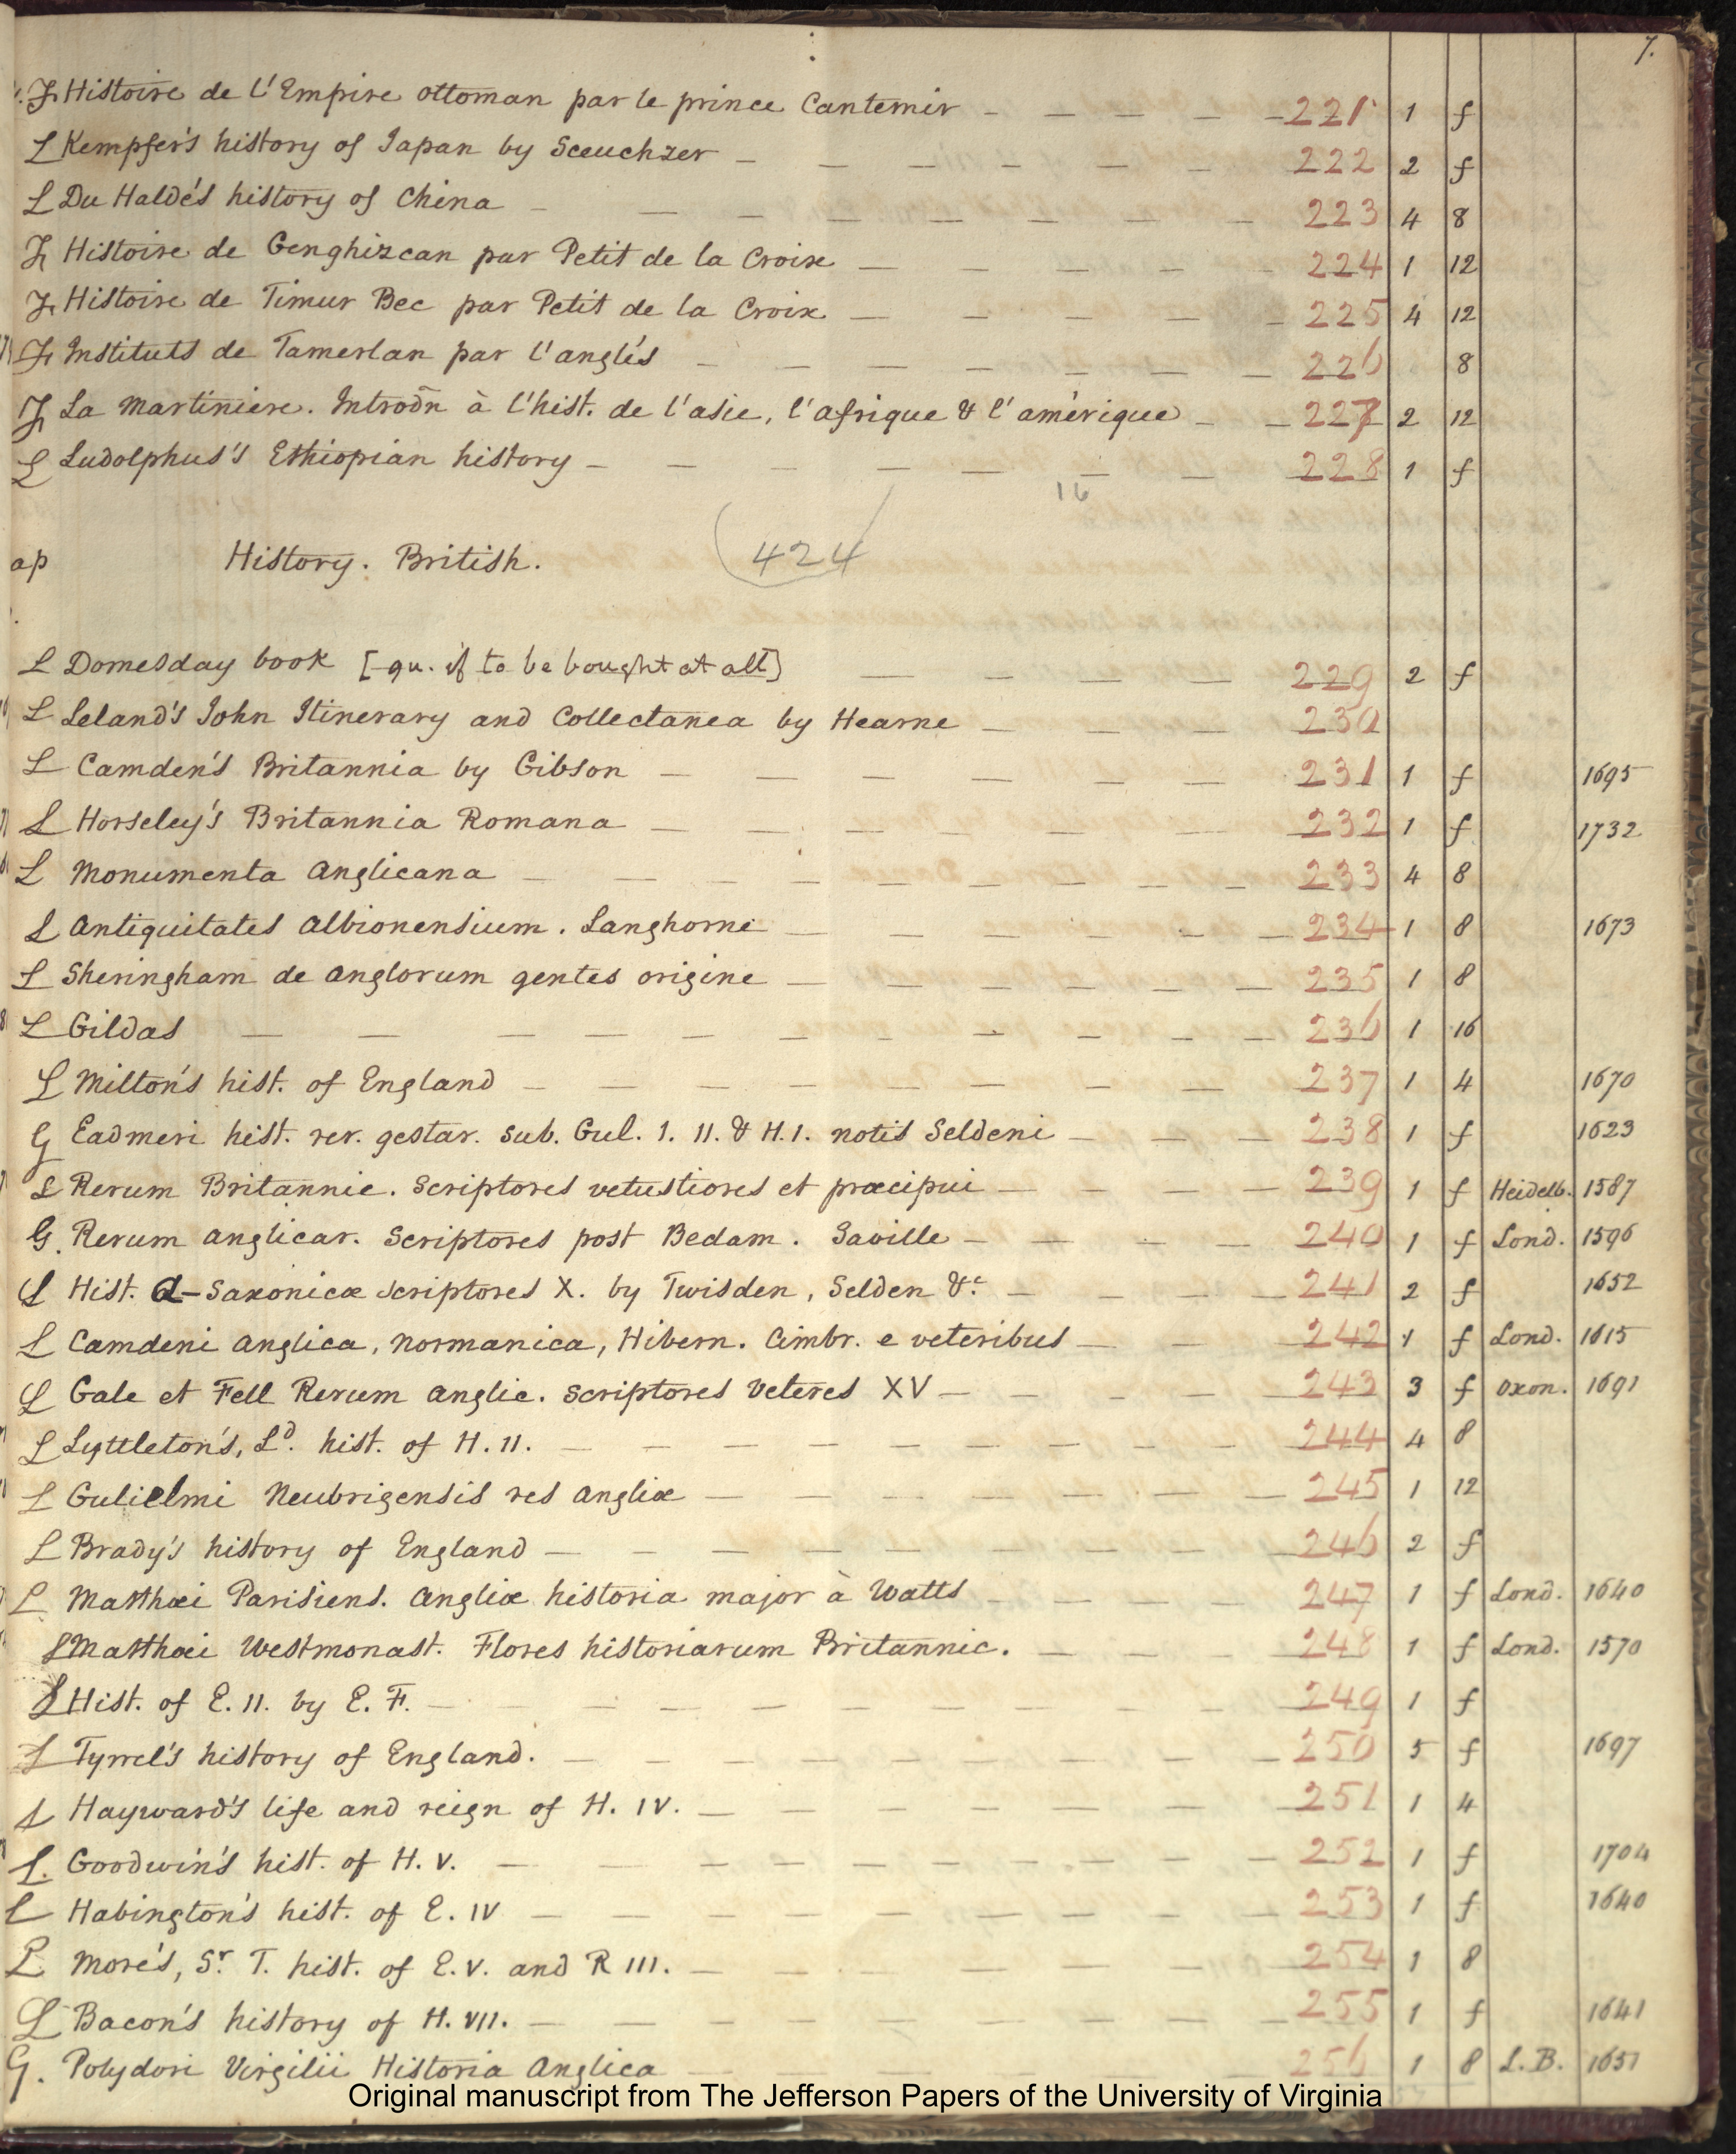 7.
F Histoire de l'Empire ottoman par le prince Cantemir - - - - - 221 1 f
L Kempfer's history of Japan by Sceuchzer - - - - - - 222 2 f
L Du Halde's history of China - - - - - - - - - 223 4 8
F Histoire de Genghizcan par Petit de la Croix - - - - - 224 1 12
F Histoire de Timur Bec par Petit de la Croix - - - - - 225 4 12
F Instituts de Tamerlan par l'anglés - - - - - - - 226 8
F La Martiniere. Introdn à l'hist. de l'asie, l'afrique & l'amérique - - 227 2 12
L Ludolphus's Ethiopian history - - - - - - - - 228 1 f
16
ap History. British. 424
L Domesday book [qu. if to be bought at all] - - - - - 229 2 f
L Leland's John Itinerary and Collectanea by Hearne - - - - 230
L Camden's Britannia by Gibson - - - - - - - 231 1 f 1695
L Horseley's Britannia Romana - - - - - - - 232 1 f 1732
L Monumenta Anglicana - - - - - - - - - 233 4 8
L Antiquitates Albionensium. Langhorne - - - - - - 234 1 8 1673
L Sheringham de Anglorum gentes origine - - - - - - 235 1 8
L Gildas - - - - - - - - - - - 236 1 16
L Milton's hist. of England - - - - - - - - - 237 1 4 1670
G Eadmeri hist. rer. gestar. sub. Gul. 1. 11. & H.1. notis Seldeni - - - 238 1 f 1623
L Rerum Britannic. Scriptores vetustiores et præcipui - - - - 239 1 f Heidelb. 1587
G. Rerum Anglicar. Scriptores post Bedam. Saville - - - - 240 1 f Lond. 1596
L Hist. A-Saxonicæ scriptores X. by Twisden, Selden &c - - - - 241 2 f 1652
L Camdeni Anglica, Normanica, Hibern. Cimbr. e veteribus - - - 242 1 f Lond. 1615
L Gale et Fell Rerum Anglic. Scriptores Veteres XV - - - - - 243 3 f Oxon. 1691
L Lyttleton's, Ld. hist. of H. 11. - - - - - - - - - 244 4 8
L Gulielmi Neubrigensis res Angliæ - - - - - - - 245 1 12
L Brady's history of England - - - - - - - - - 246 2 f
L Matthæi Parisiens. Angliæ historia major à Watts - - - - 247 1 f Lond. 1640
L Matthæi Westmonast. Flores historiarum Britannic. - - - - 248 1 f Lond. 1570
L Hist. of E. 11. by E. F. - - - - - - - - - 249 1 f
L Tyrrel's history of England. - - - - - - - - - 250 5 f 1697
L Hayward's life and reign of H. IV. - - - - - - - 251 1 4
L. Goodwin's hist. of H. V. - - - - - - - - - 252 1 f 1704
L Habington's hist. of E. IV - - - - - - - - - 253 1 f 1640
L More's, Sr. T. hist. of E. V. and R III. - - - - - - - 254 1 8
L Bacon's history of H. VII. - - - - - - - - - 255 1 f 1641
G. Polydori Virgilii Historia Anglica - - - - - - - 256 1 8 L.B. 1651
Original manuscript from The Jefferson Papers of the University of Virginia